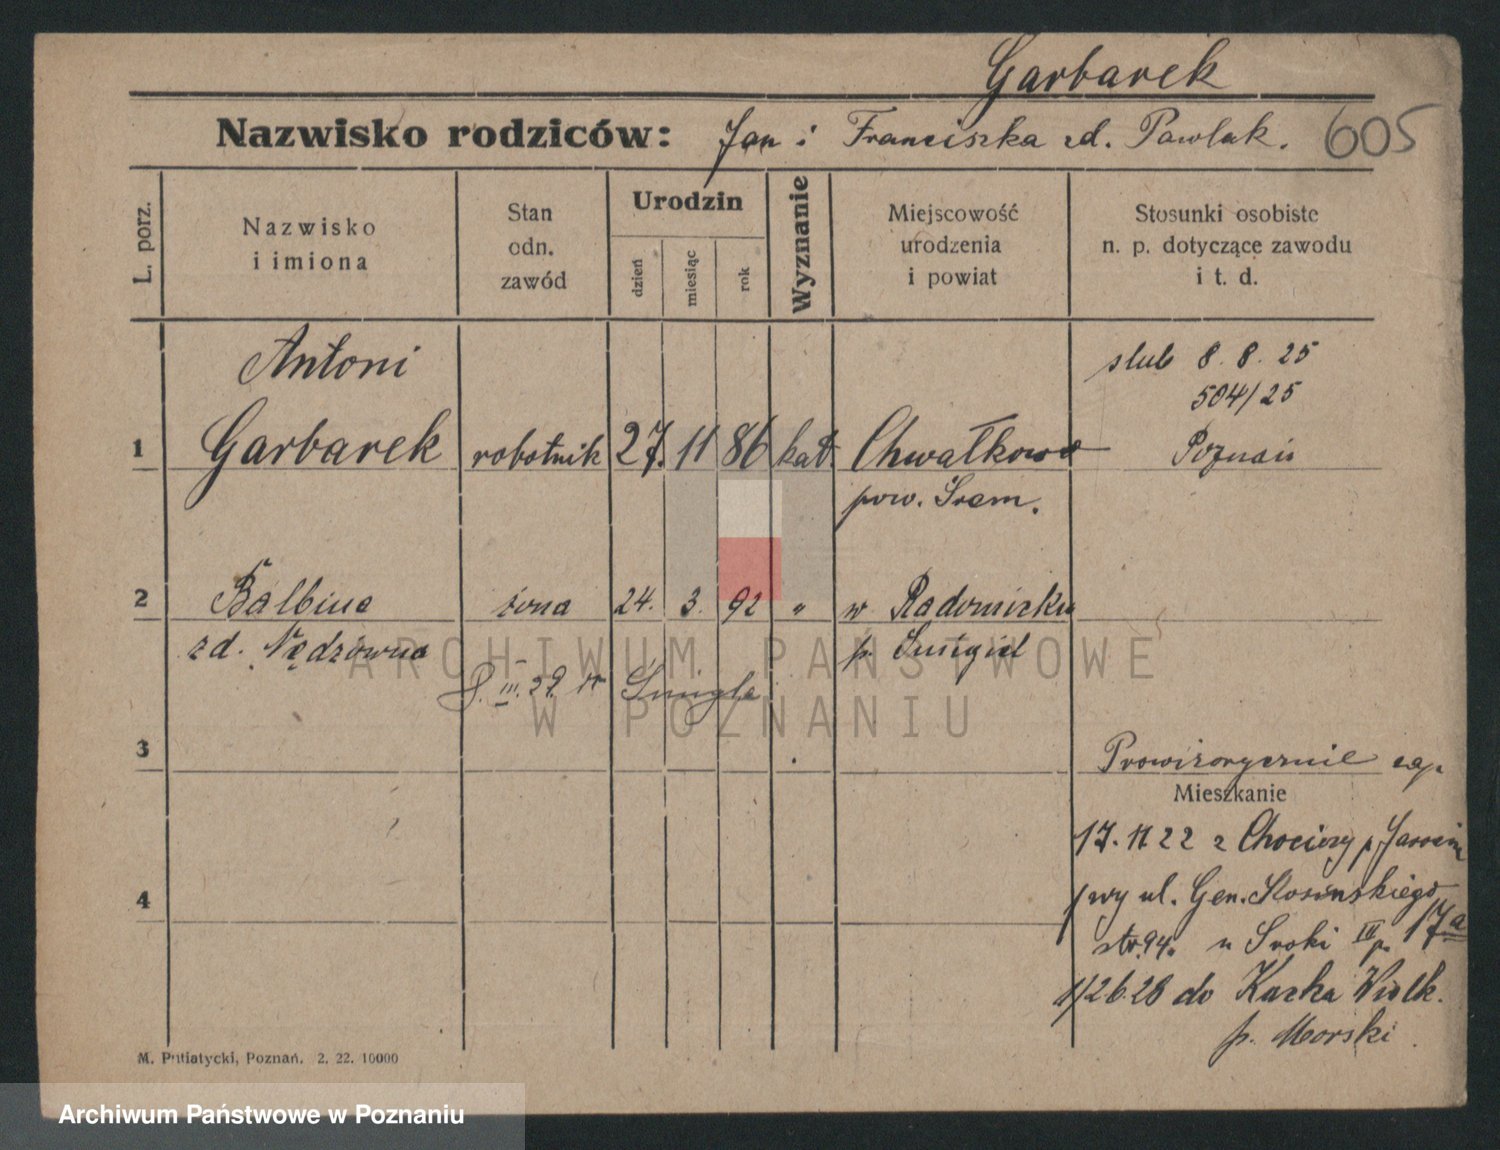 Garbarek
Nazwisko rodziców: Jan i Franciszka zd. Pawlak. 605
L. porz.
Nazwisko
i imiona
Stan
odn.
zawód
Urodzin
dzień
miesiąc
rok
Wyznanie
Miejscowość
urodzenia
i powiat
Stosunki osobiste
n. p. dotyczące zawodu
i t. d.
Antoni
ślub 8. 8. 25
504/25
1 Garbarek robotnik 27. 11 86 kat. Chwałkowo Poznań
pow. Śrem.
2 Balbina żona 24. 3. 92 " w Radomicku
zd. Nędzówna p. Śmigiel
III. 29. Śmigla
3
Prowizorycznie zap.
Mieszkanie
17. 11 22 z Chociczy p Jarocin
przy ul. Gen. Kosinskiego
str. 94. u Sroki III p. 17a
26.26 do Kaźka Wielk.
p. Morski
4
M. Putiatycki, Poznań. 2. 22. 10000
ARCHIWUM PAŃSTWOWE
W POZNANIU
Archiwum Państwowe w Poznaniu